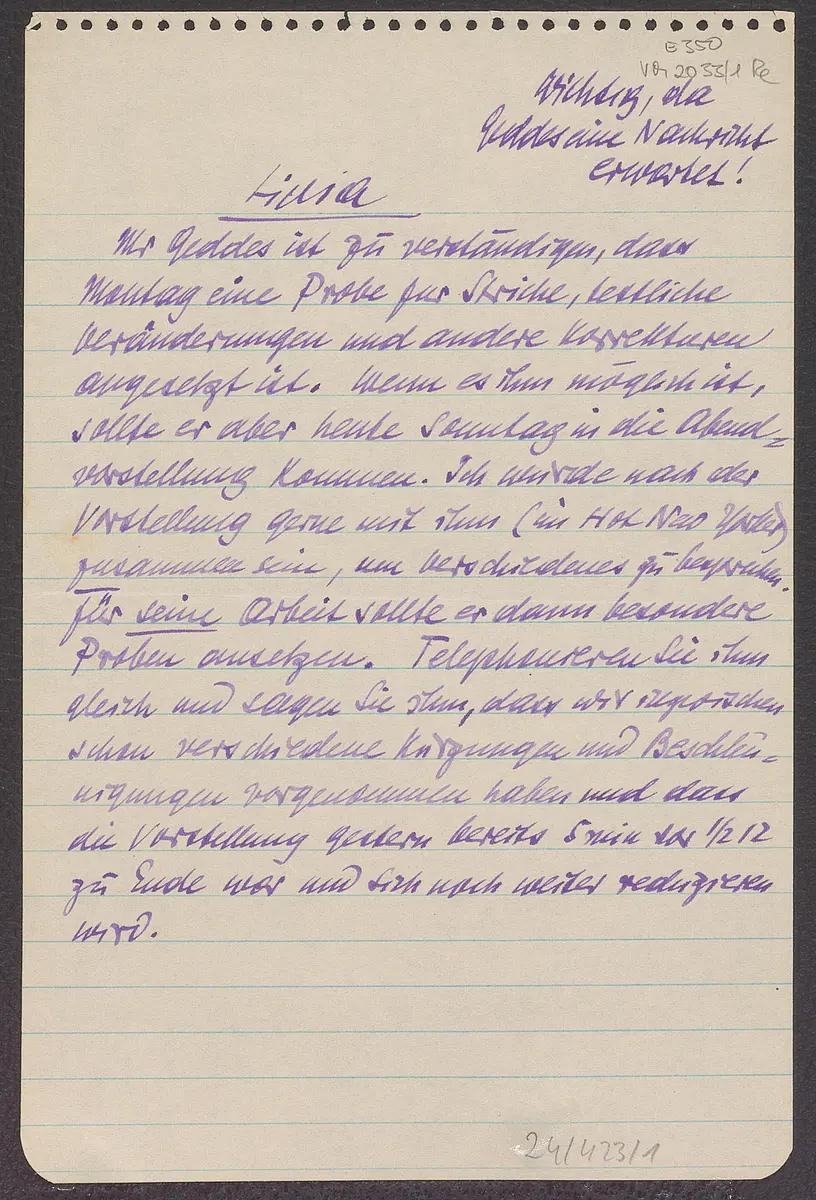 E 350
VM 2033/1 Re
Wichtig, da
Geddes eine Nachricht
erwartet!
Lidia
Mr Geddes ist zu verständigen, dass
Montag eine Probe für Striche, textliche
Veränderungen und andere Korrekturen
angesetzt ist. Wenn es ihm möglich ist,
sollte er aber heute Sonntag in die Abend=
vorstellung kommen. Ich würde nach der
Vorstellung gerne mit ihm (im Hot New Yorker)
zusammen sein, um Verschiedenes zu besprechen.
Für seine Arbeit sollte er dann besondere
Proben ansetzen. Telephonieren Sie ihm
gleich und sagen Sie ihm, dass wir inzwischen
schon verschiedene Kürzungen und Beschleu=
nigungen vorgenommen haben und dass
die Vorstellung gestern bereits 5 min vor 1/2 12
zu Ende war und sich noch weiter reduzieren
wird.
24/423/1